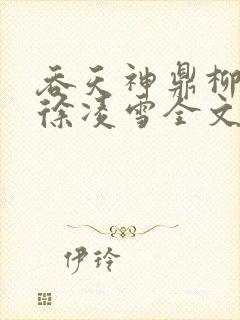 吞天神鼎柳
徐凌雪全文
伊玲